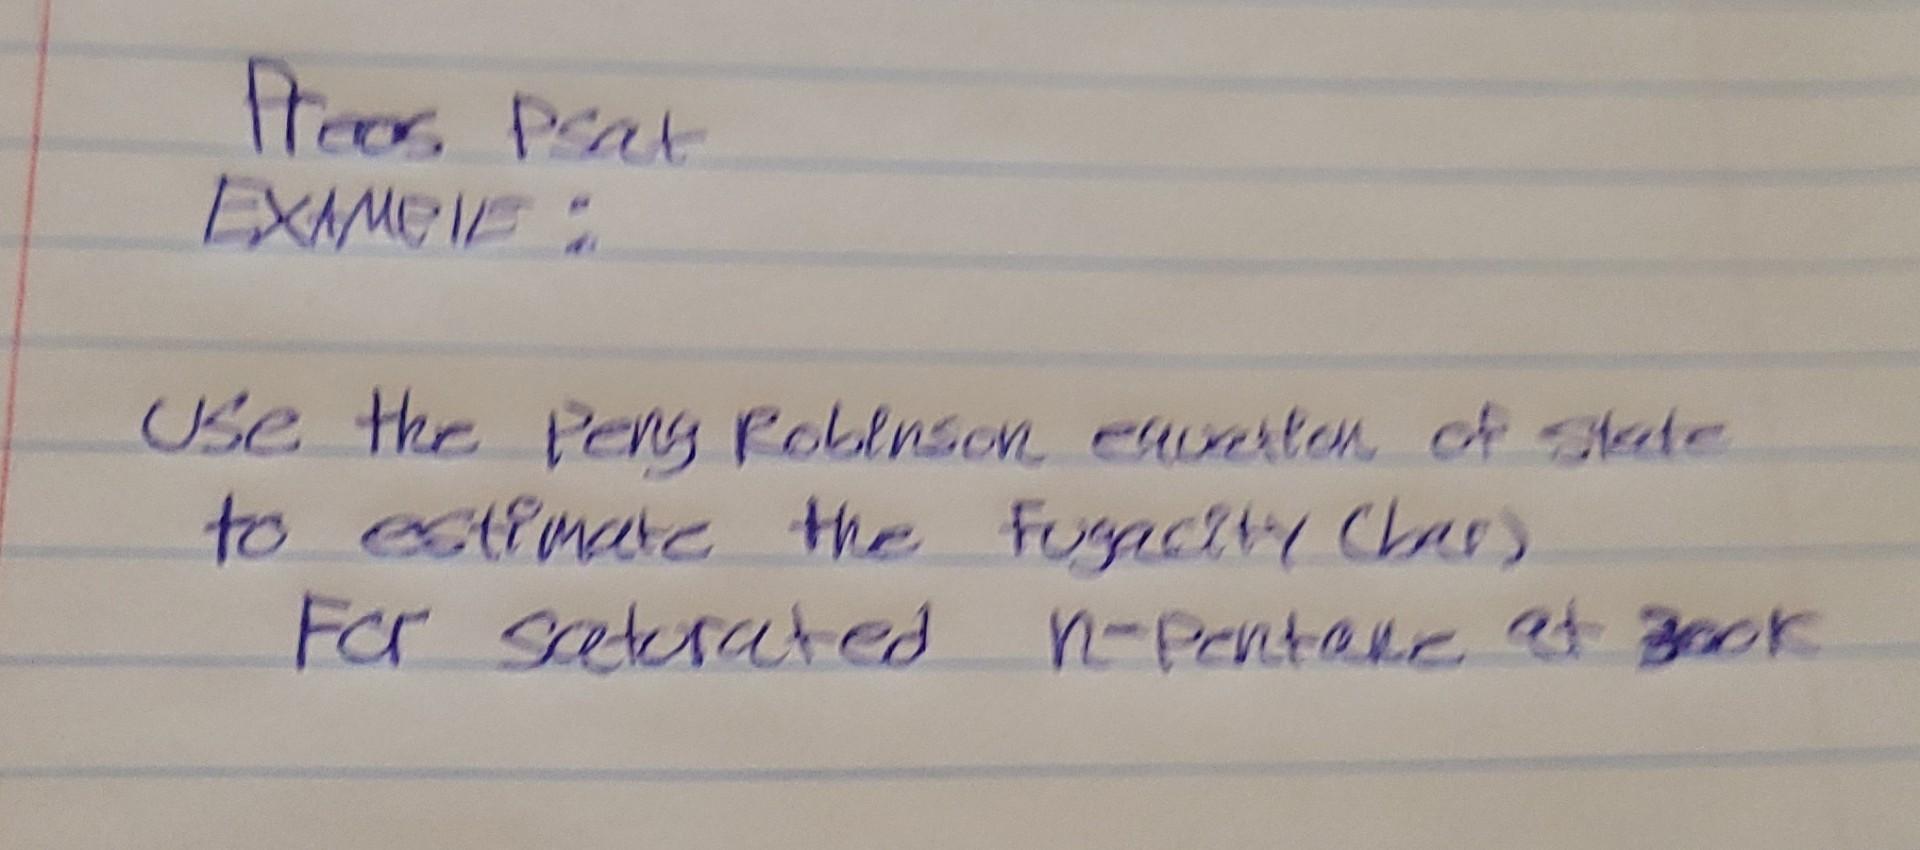 Preos Psat
EXAMPLE:
Use the Peng Robinson equation of state
to estimate the Fugacity (bar)
For saturated n-Pentane at 300K